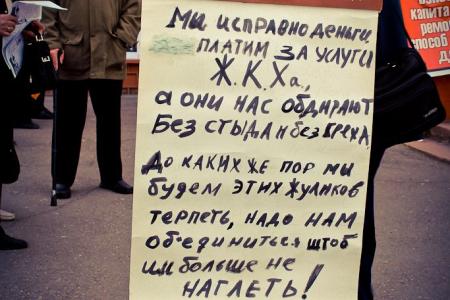 Мы исправно деньги
платим за услуги
Ж.К.Ха,
а они нас обдирают
Без стыда и без Греха
До каких же пор мы
будем этих Жуликов
терпеть, надо нам
объединиться штоб
им больше не
наглеть!
капита
ремо
способ